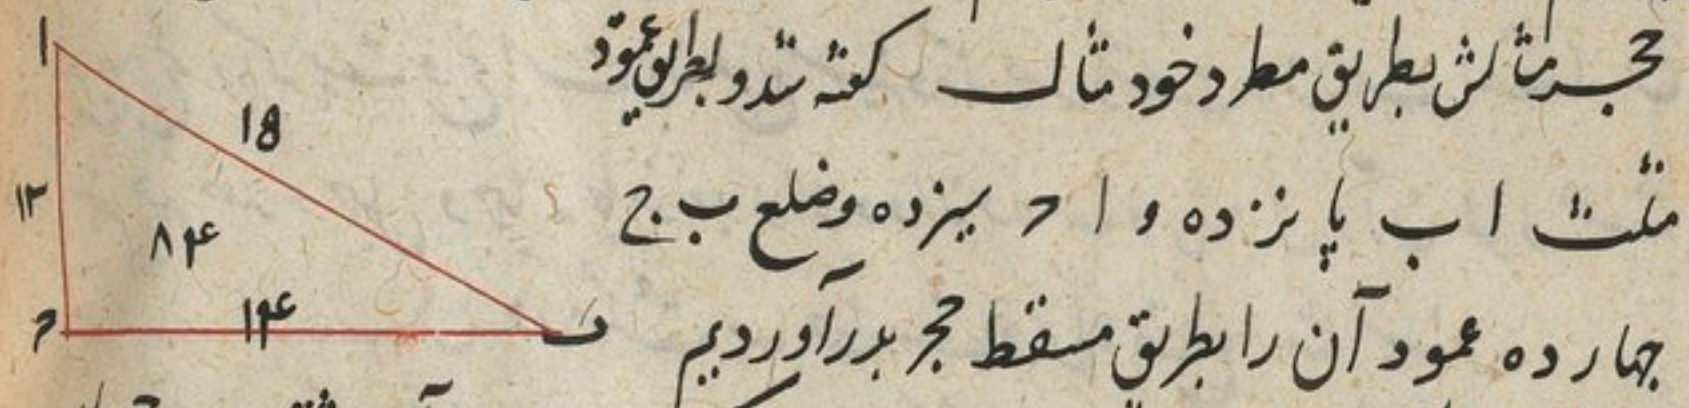 حجر مثالش بطریق مطرد خود مثال کفته شد و بطریق عمود
مثلث ا ب پانزده و ا ح سیزده وضلع ب ج
چهارده عمود آن را بطریق مسقط حجر بدرآوردیم
ا
۱۵
۱۳
۸۴
۱۴
ح
ب